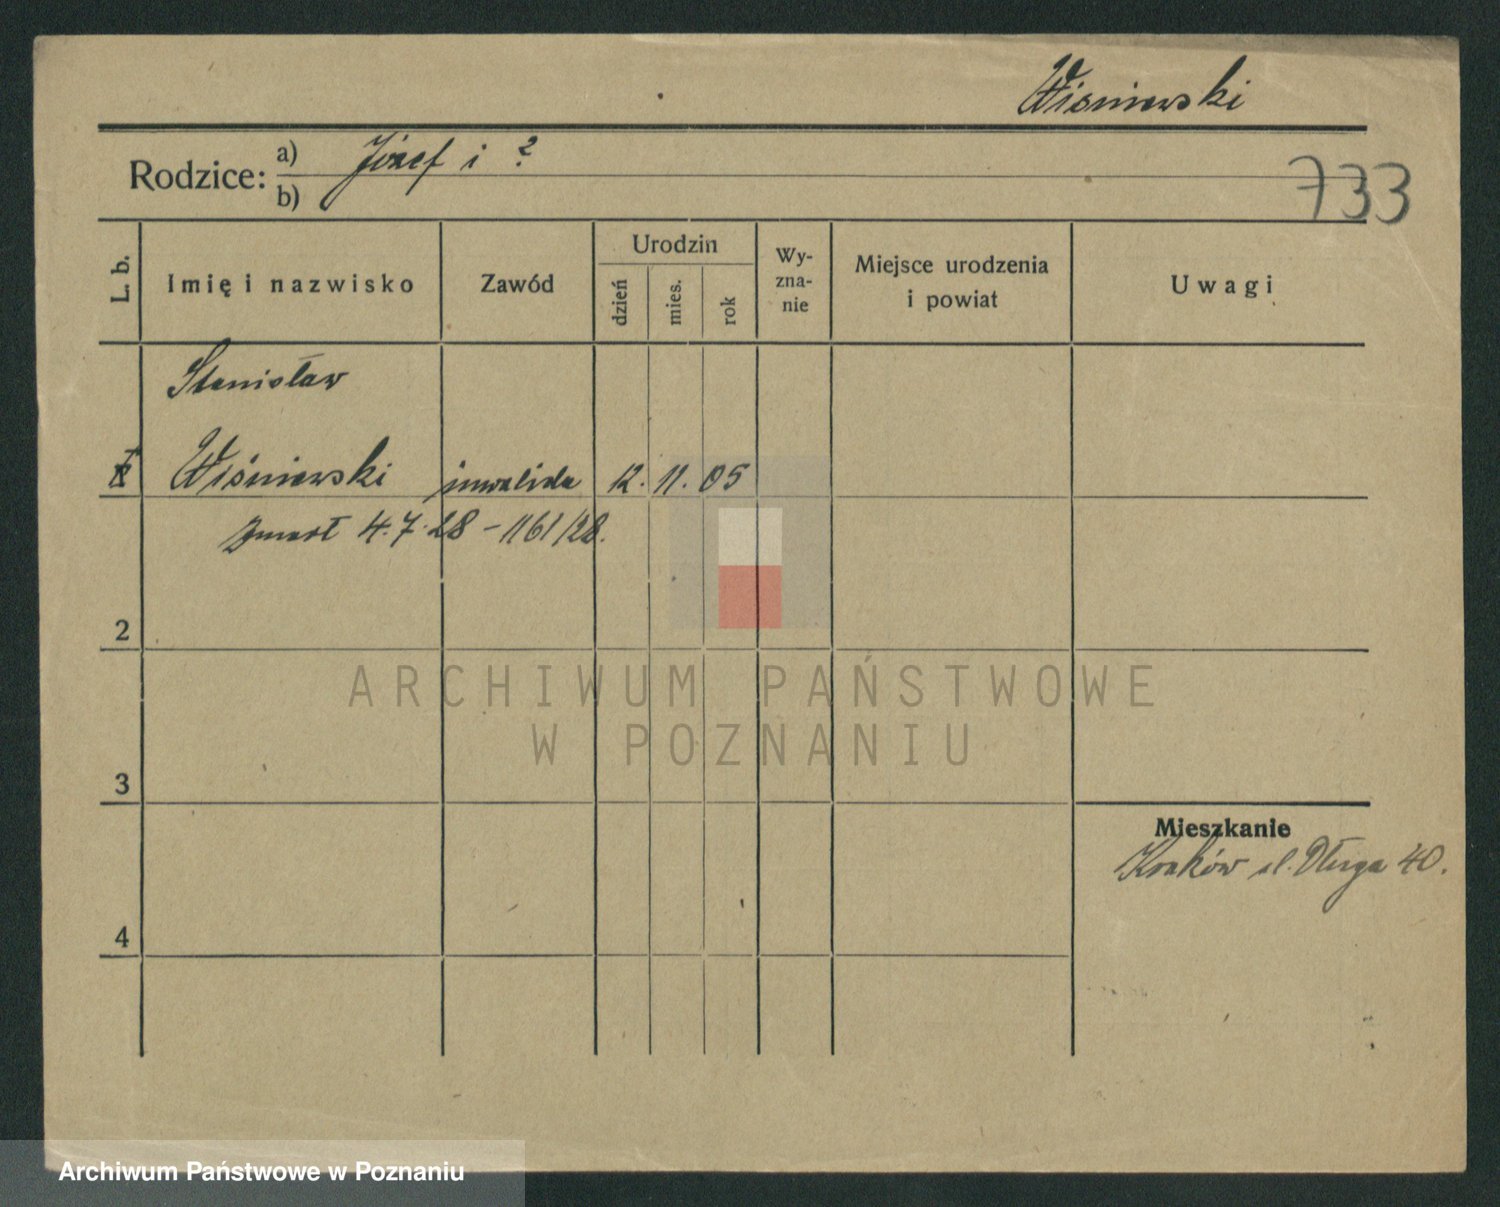 Wiśniewski
Rodzice: a) Józef i ?
b)
733
L. b.
Imię i nazwisko
Zawód
Urodzin
dzień
mies.
rok
Wy-
zna-
nie
Miejsce urodzenia
i powiat
Uwagi
Stanisław
Wiśniewski inwalida 12. 11. 05
Zmarł 4.7.28 – 1161/28.
2
3
4
Mieszkanie
Kraków ul. Długa 40.
ARCHIWUM PAŃSTWOWE
W POZNANIU
Archiwum Państwowe w Poznaniu